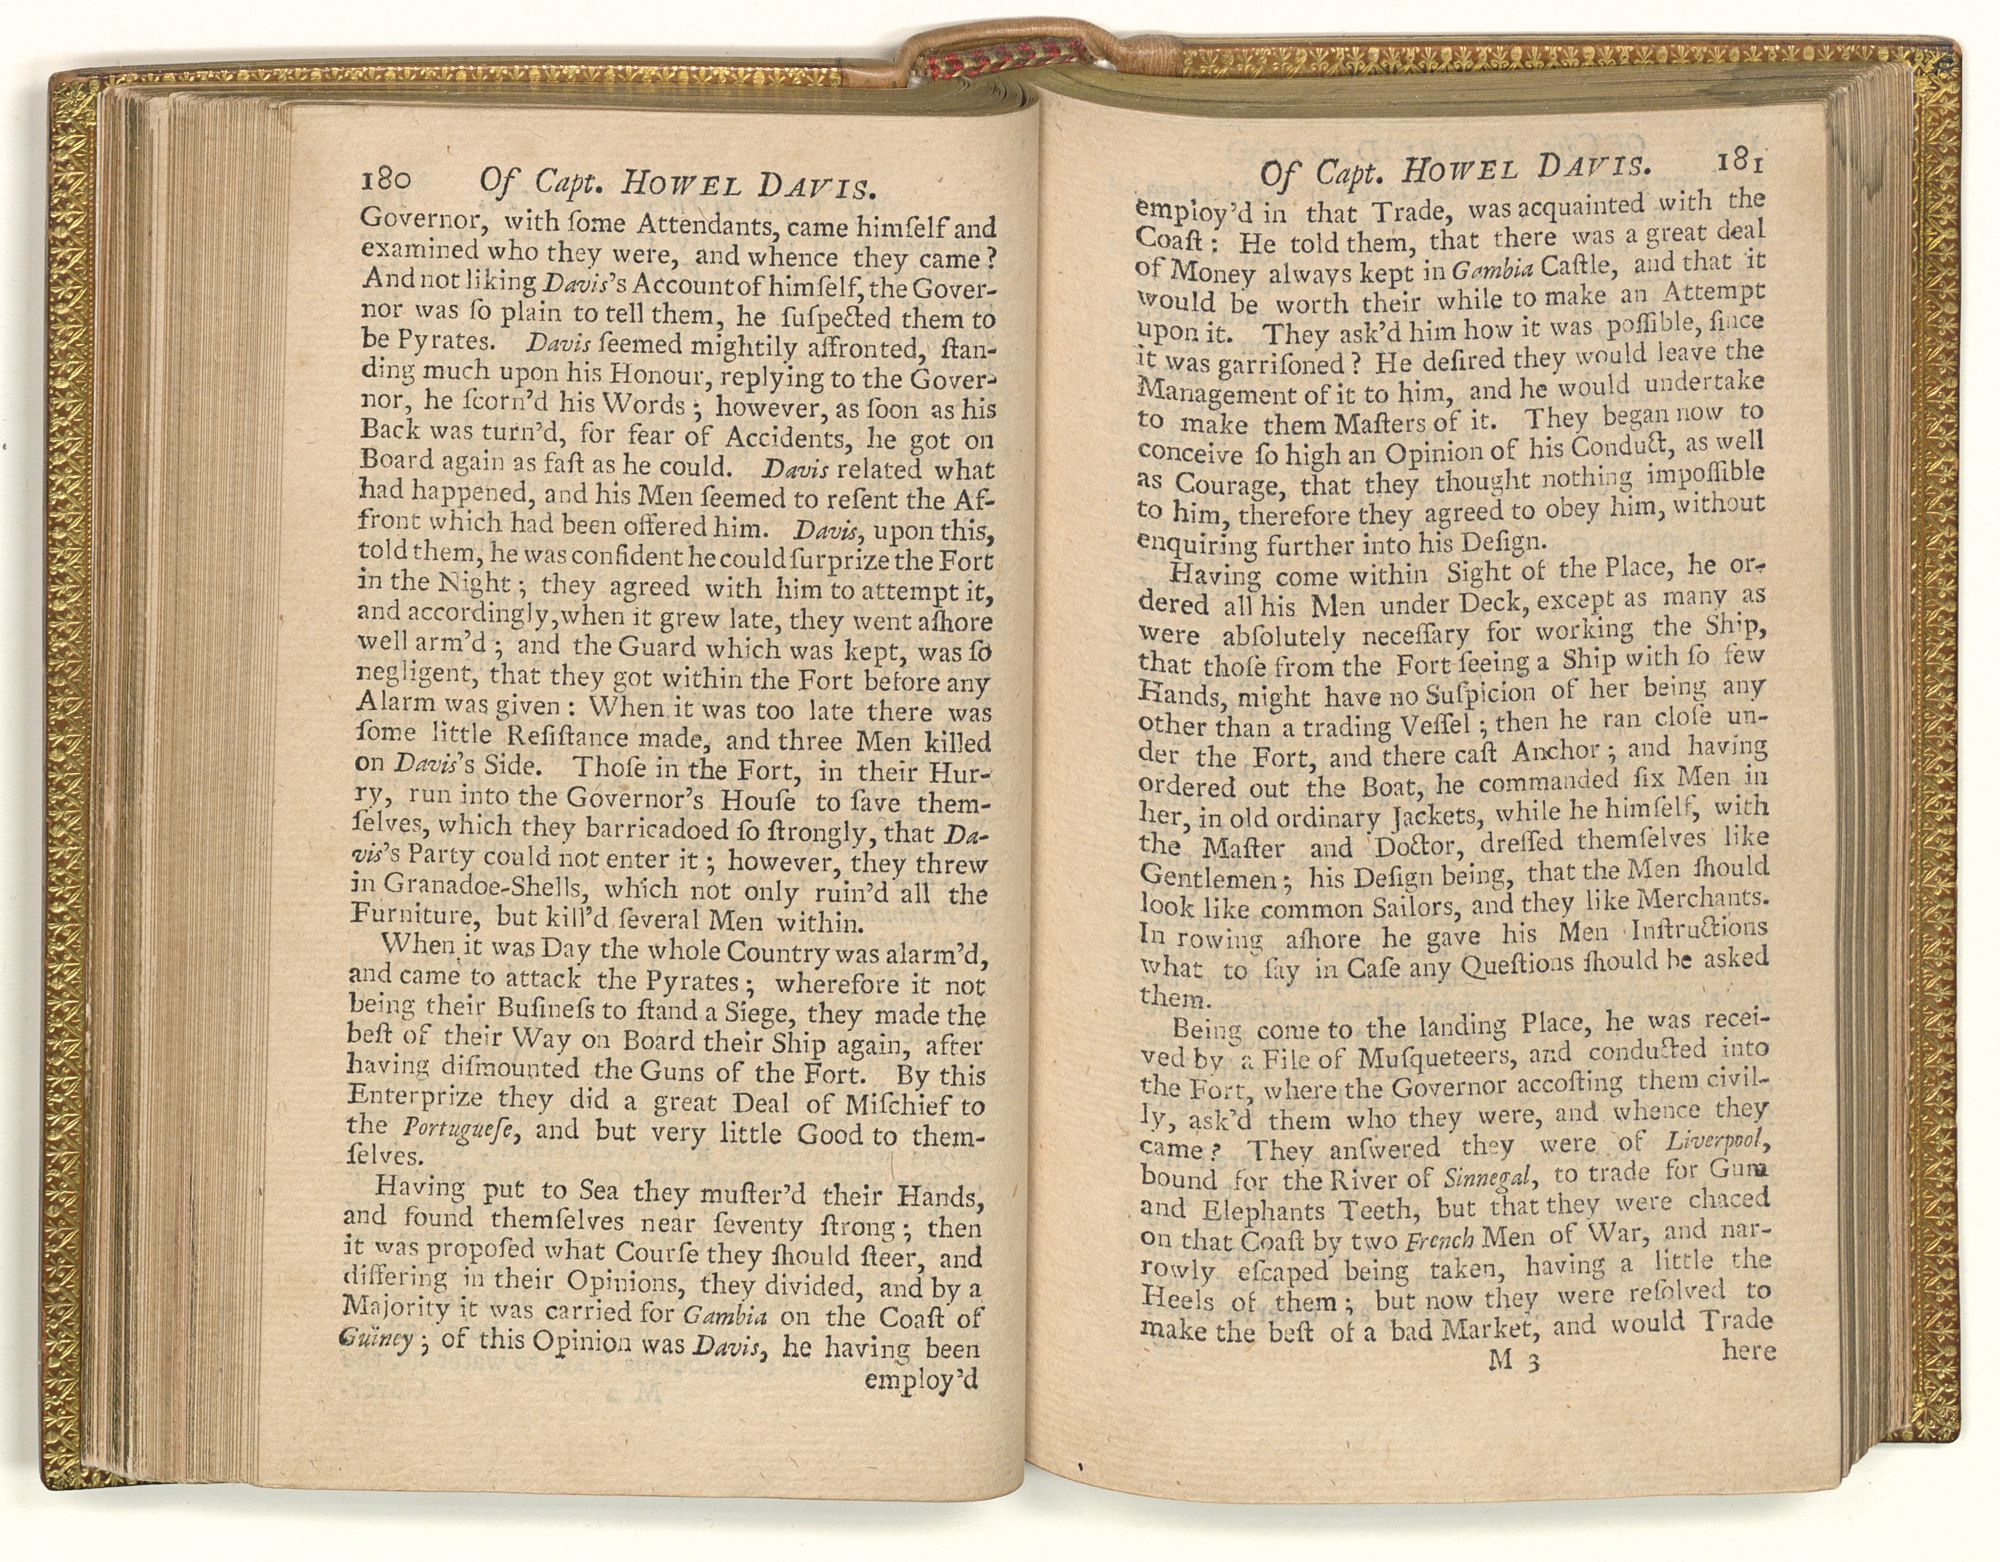 180 Of Capt. HOWEL DAVIS.
Governor, with ſome Attendants, came himſelf and
examined who they were, and whence they came?
And not liking Davis's Account of himſelf, the Gover-
nor was ſo plain to tell them, he ſuſpected them to
be Pyrates. Davis ſeemed mightily affronted, ſtan-
ding much upon his Honour, replying to the Gover-
nor, he ſcorn'd his Words; however, as ſoon as his
Back was turn'd, for fear of Accidents, he got on
Board again as faſt as he could. Davis related what
had happened, and his Men ſeemed to reſent the Af-
front which had been offered him. Davis, upon this,
told them, he was confident he could ſurprize the Fort
in the Night; they agreed with him to attempt it,
and accordingly, when it grew late, they went aſhore
well arm'd; and the Guard which was kept, was ſo
negligent, that they got within the Fort before any
Alarm was given: When it was too late there was
ſome little Reſiſtance made, and three Men killed
on Davis's Side. Thoſe in the Fort, in their Hur-
ry, run into the Governor's Houſe to ſave them-
ſelves, which they barricadoed ſo ſtrongly, that Da-
vis's Party could not enter it; however, they threw
in Granadoe-Shells, which not only ruin'd all the
Furniture, but kill'd ſeveral Men within.
When it was Day the whole Country was alarm'd,
and came to attack the Pyrates; wherefore it not
being their Buſineſs to ſtand a Siege, they made the
beſt of their Way on Board their Ship again, after
having diſmounted the Guns of the Fort. By this
Enterprize they did a great Deal of Miſchief to
the Portugueſe, and but very little Good to them-
ſelves.
Having put to Sea they muſter'd their Hands,
and found themſelves near ſeventy ſtrong; then
it was propoſed what Courſe they ſhould ſteer, and
differing in their Opinions, they divided, and by a
Majority it was carried for Gambia on the Coaſt of
Guiney; of this Opinion was Davis, he having been
employ'd
Of Capt. HOWEL DAVIS. 181
employ'd in that Trade, was acquainted with the
Coaſt: He told them, that there was a great deal
of Money always kept in Gambia Caſtle, and that it
would be worth their while to make an Attempt
upon it. They ask'd him how it was poſſible, ſince
it was garriſoned? He deſired they would leave the
Management of it to him, and he would undertake
to make them Maſters of it. They began now to
conceive ſo high an Opinion of his Conduct, as well
as Courage, that they thought nothing impoſſible
to him, therefore they agreed to obey him, without
enquiring further into his Deſign.
Having come within Sight of the Place, he or-
dered all his Men under Deck, except as many as
were abſolutely neceſſary for working the Ship,
that thoſe from the Fort ſeeing a Ship with ſo few
Hands, might have no Suſpicion of her being any
other than a trading Veſſel; then he ran cloſe un-
der the Fort, and there caſt Anchor; and having
ordered out the Boat, he commanded ſix Men in
her, in old ordinary Jackets, while he himſelf, with
the Maſter and Doctor, dreſſed themſelves like
Gentlemen; his Deſign being, that the Men ſhould
look like common Sailors, and they like Merchants.
In rowing aſhore he gave his Men Inſtructions
what to ſay in Caſe any Queſtions ſhould be asked
them.
Being come to the landing Place, he was recei-
ved by a File of Muſqueteers, and conducted into
the Fort, where the Governor accoſting them civil-
ly, ask'd them who they were, and whence they
came? They anſwered they were of Liverpool,
bound for the River of Sinnegal, to trade for Gum
and Elephants Teeth, but that they were chaced
on that Coaſt by two French Men of War, and nar-
rowly eſcaped being taken, having a little the
Heels of them; but now they were reſolved to
make the beſt of a bad Market, and would Trade
M 3 here